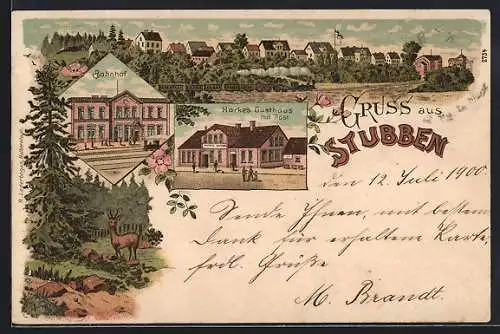 Bahnhof
Harkes Gasthaus
mit Post
GRUSS aus
STUBBEN
2754
den 12. Juli 1900.
Sende Ihnen, mit bestem
Dank für erhaltene Karte,
frdl. Grüße
M. Brandt.